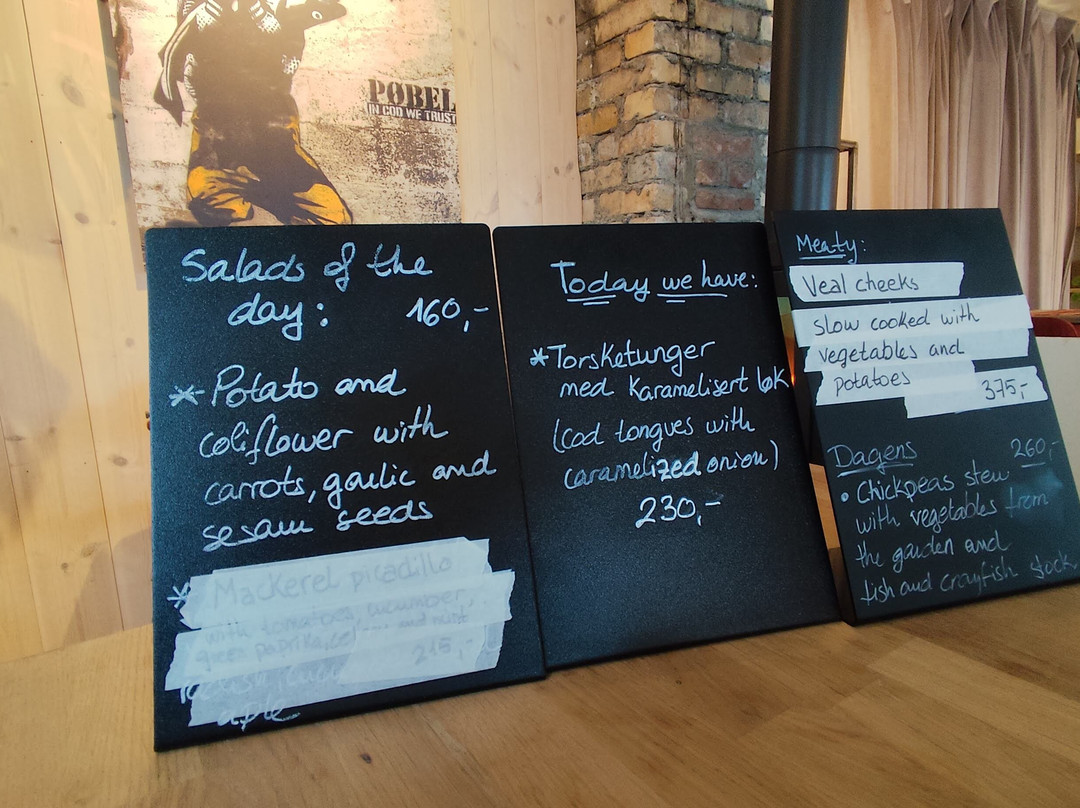 PØBEL
IN COD WE TRUST
Salads of the
day: 160,-
* Potato and
coliflower with
carrots, garlic and
sesam seeds
* Mackerel picadillo
with tomatoes, cucumber,
paprika,
215,-
Today we have:
* Torsketunger
med karamelisert løk
(cod tongues with
caramelized onion)
230,-
Meaty:
Veal cheeks
slow cooked with
vegetables and
potatoes
375,-
Dagens 260,-
• Chickpeas stew
with vegetables from
the garden and
fish and crayfish stock